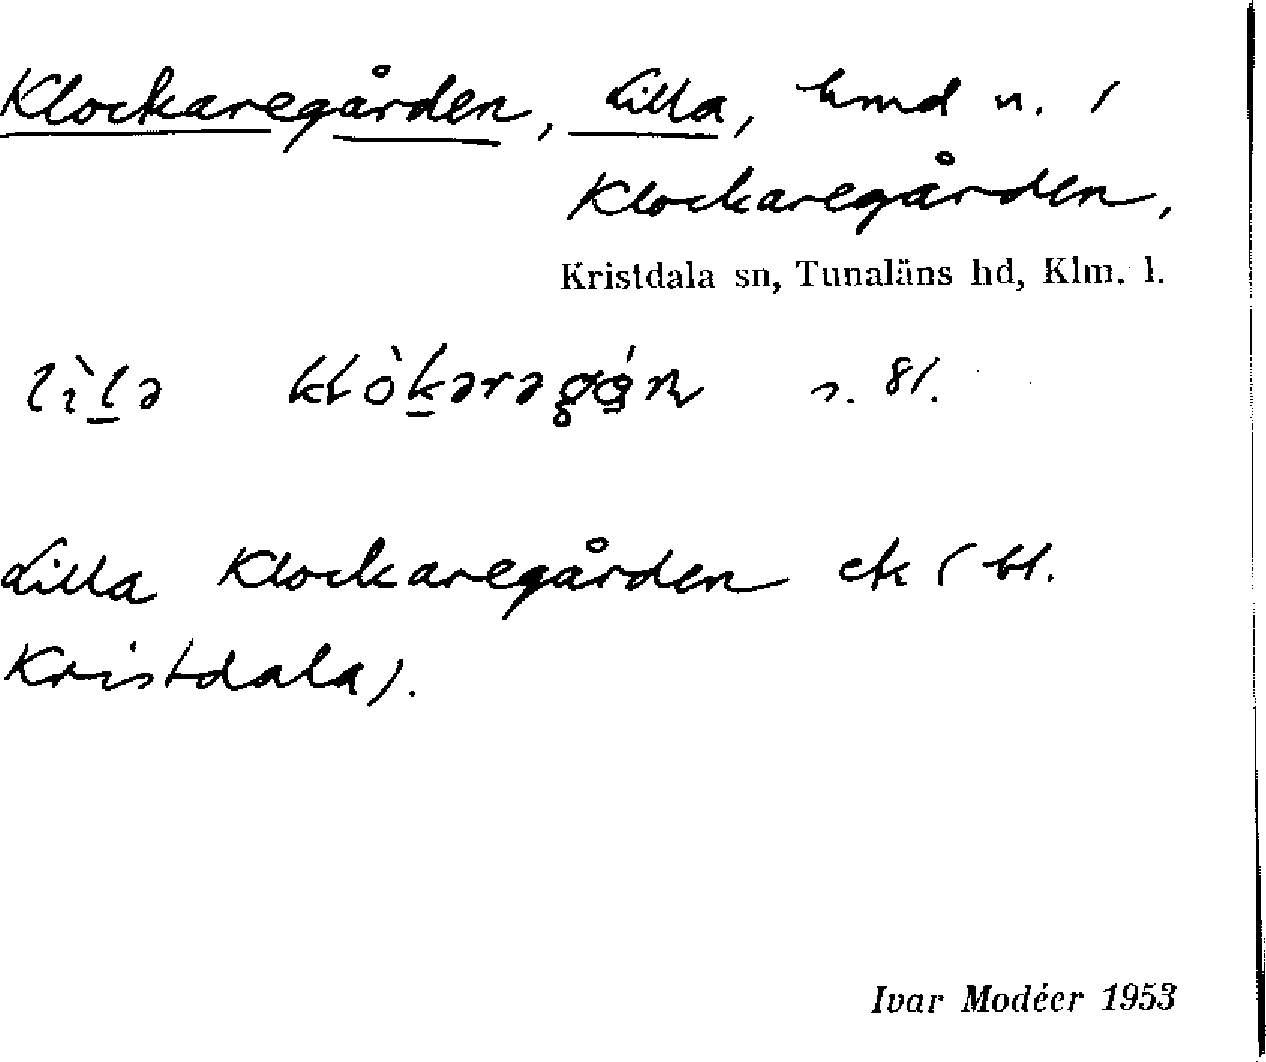 Klockaregården, Lilla, hmd n. i
Klockaregården,
Kristdala sn, Tunaläns hd, Klm. l.
Lilla Klockaregården ek (bl.
Kristdala).
Ivar Modéer 1953